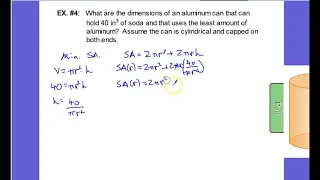 EX. #4: What are the dimensions of an aluminum can that can
hold 40 in³ of soda and that uses the least amount of
aluminum? Assume the can is cylindrical and capped on
both ends.
Min. SA
V = πr²h
40 = πr²h
h = 40/πr²
SA = 2πr² + 2πrh
SA(r) = 2πr² + 2πr(40/πr²)
SA(r) = 2πr²